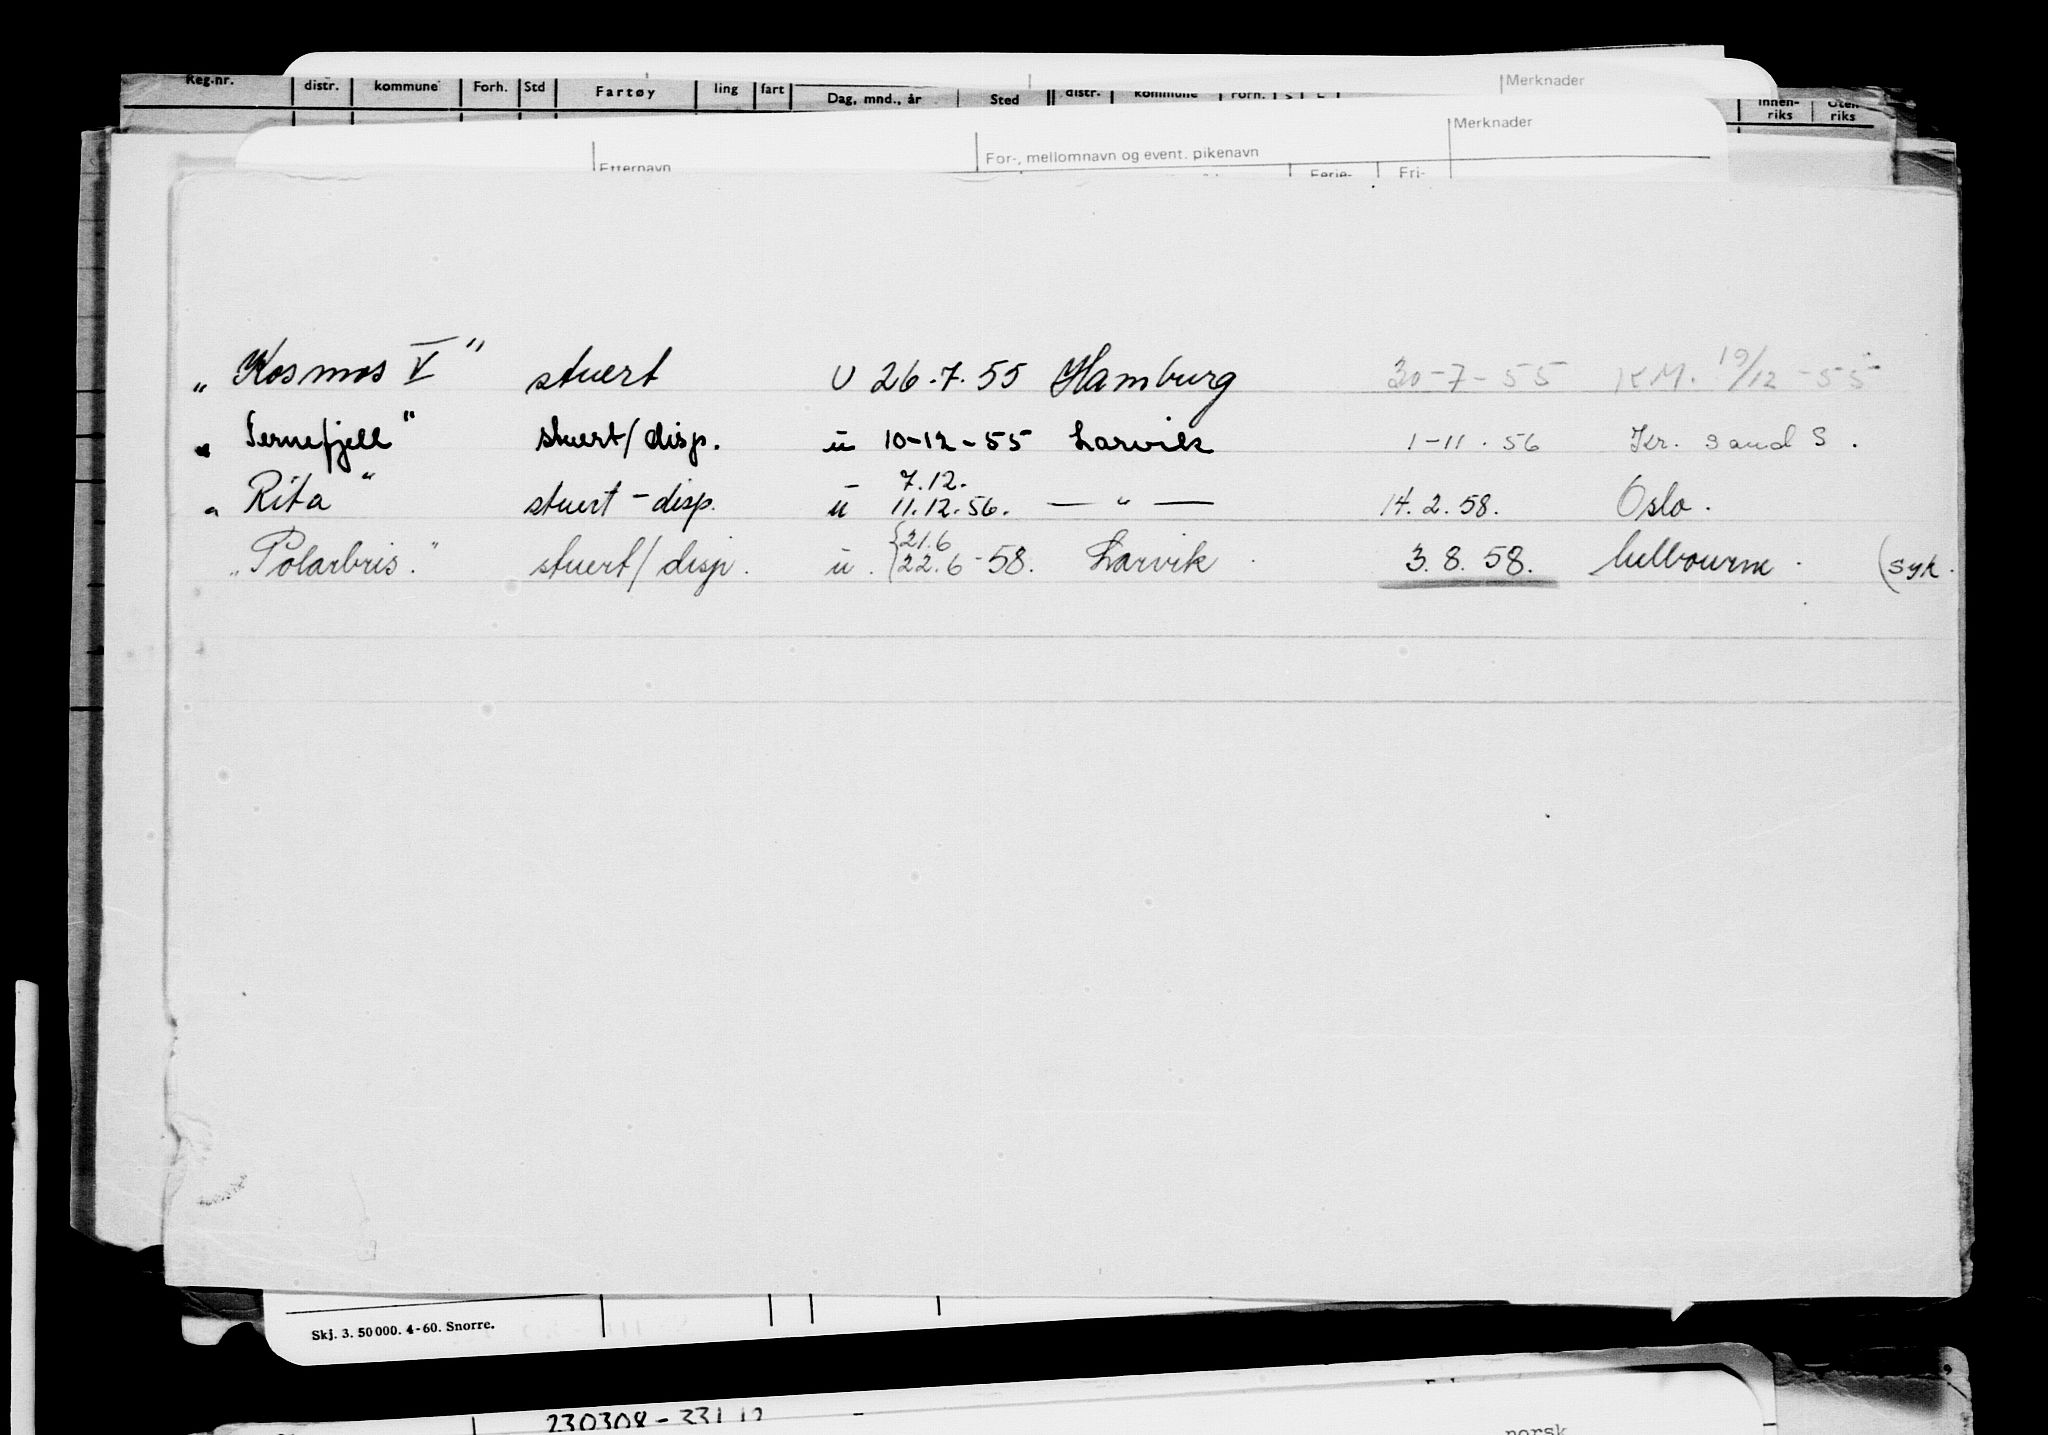 Reg.nr. distr. kommune Forh. Std Fartøy ling fart Dag, mnd., år Sted distr. kommune Forh. Merknader
Innen- riks Uten riks
Merknader
Etternavn For-, mellomnavn og event. pikenavn
Ferie- Fri-
„Kosmos V" stuert U 26.7.55 Hamburg 30-7-55 KM. 19/12-55
„Ternefjell" stuert/disp. u 10-12-55 Larvik 1-11.56 Kr. sand S.
7.12.
„Rita" stuert-disp. u 11.12.56. — „ — 14.2.58. Oslo.
21.6
„Polarbris." stuert/disp. u. 22.6-58. Larvik 3.8.58. Melbourne. (syk.
Skj. 3. 50 000. 4-60. Snorre.
230308-331 12
norsk